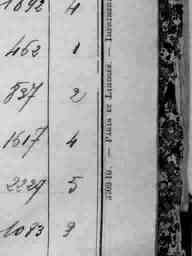 1692 4
462 1
837 2
1617 4
2229 5
1083 3
Paris et Limoges. — Imprimerie